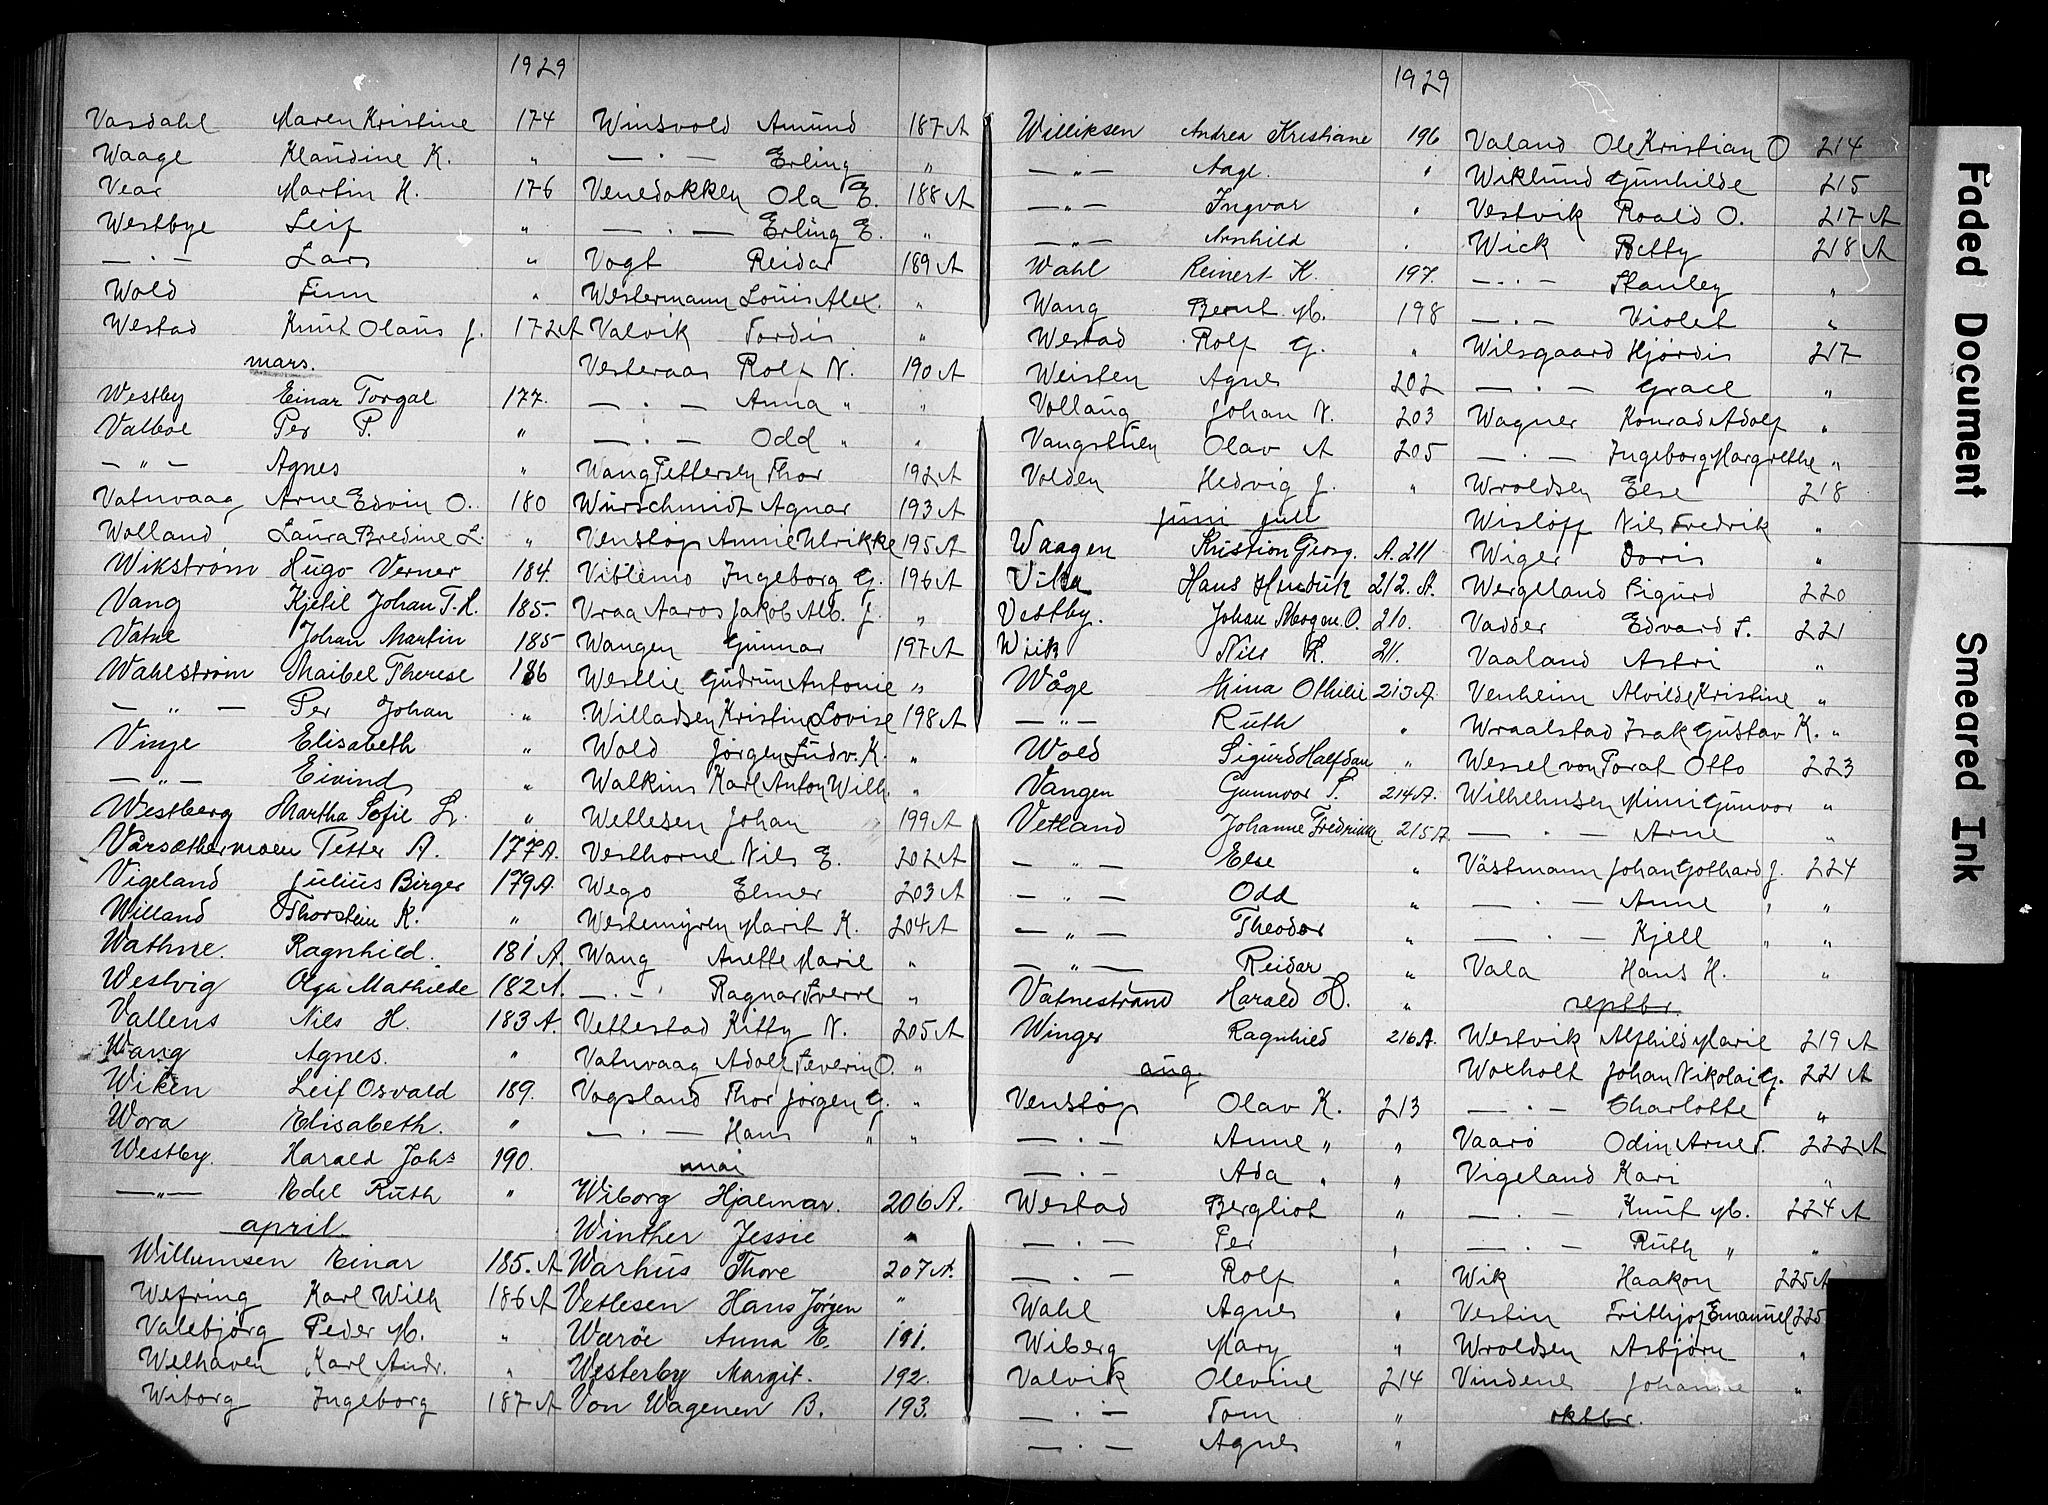 1929
Vasdahl Maren Kristine 174
Waage Klaudine K. "
Vear Martin H. 176
Westbye Leif "
— . — Lars "
Wold Finn "
Westad Knut Olaus J. 172A
mars.
Westby Einar Torgal 177.
Valboe Per P. "
— " — Agnes "
Vatnvaag Arne Edvin O. 180
Wolland Laura Bredine L. "
Wikstrøm Hugo Verner 184.
Vang Kjetil Johan T. H. 185.
Vatne Johan Martin 185
Wahlstrøm Maibel Therese 186
— " — Per Johan "
Vinje Elisabeth "
— " — Eivind "
Westberg Martha Sofie L. "
Vårsæthermoen Petter A. 177A.
Vigeland Julius Birger 179A.
Willand Thorstein K. "
Wathne. Ragnhild. 181 A.
Westvig Olga Mathilde 182A.
Vallens Nils H. 183 A.
Wang Agnes. "
Wiken Leif Osvald 189.
Wora Elisabeth. "
Westby. Harald Johs 190.
— " — Edel Ruth "
april.
Willumsen Einar 185. A
Wefring Karl Wilh 186 A
Valebjørg Peder M. "
Welhaven Karl Andr. "
Wiborg Ingeborg 187 A
Windvold Amund 187 A
— . — Erling "
Venedokken Ola E. 188 A
— . — Erling E. "
Vogt Reidar 189 A
Westermann Louis Alex. "
Valvik Tordis "
Vesteraas Rolf N. 190 A
— . — Anna " "
— . — Odd " "
Wang Pettersen Thor 192 A
Wurschmidt Agnar 193 A
Venstøp Annie Ulrikke 195 A
Viblemo Ingeborg G. 196 A
Vraa Aaros Jakob Alb. J. "
Wangen Gunnar 197 A
Westlie Gudrun Antonie "
Willadsen Kristine Lovise 198 A
Wold Jørgen Ludv. K. "
Walkins Karl Anton Wilh. "
Wetlesen Johan 199 A
Vesthorne Nils E. 202 A
Wego Elmer 203 A
Westemyren Marit K. 204 A
Wang Anette Marie "
— . — Ragnar Sverre "
Vettestad Kitty N. 205 A
Vatnvaag Adolf Severin O. "
Vogsland Thor Jørgen G. "
— . — Hans " "
mai
Wiborg Hjalmar. 206 A.
Winther Jessie "
Warhus Thore 207 A.
Vetlesen Hans Jørgen "
Wærøe Anna E. 191.
Westerby Margit. 192.
Von Wagenen B. 193.
1929
Williksen Andrea Kristiane 196
— " — Aage. "
— " — Ingvar "
— " — Arnhild "
Wahl Reinert K. 197.
Wang Bernt M. 198
Westad Rolf G. "
Weisten Agnes 202
Vollaug Johan N. 203
Vangstuen Olav A 205
Volden Hedvig J. "
juni juli
Waagen Kristian Georg. A. 211
Vika Hans Hendrik 212. A.
Vestby. Johan Mogen O. 210.
Wiik Nils L. 211.
Wåge Mina Othilie 213 A.
— " — Ruth "
Wold Sigurd Halfdan "
Vangen Gunnvor S. 214 A.
Vetland Johanne Fredrikke 215 A.
— " — Else "
— " — Odd "
— " — Theodor "
— " — Reidar "
Vatnestrand Harald O. "
Winger Ragnhild 216 A.
aug.
Venstøp Olav K. 213
— . — Anne " "
— . — Ada " "
Westad Bergliot "
— . — Per "
— . — Rolf "
Wahl Agnes "
Wiberg Mary "
Valvik Olevine 214
— . — Tom "
— . — Agnes "
Valand Ole Kristian O 214
Wiklund Gunhilde 215
Vestvik Roald O. 217 A
Wick Betty 218 A
— . — Stanley "
— . — Violet "
Wilsgaard Hjørdis 217
— . — Grace "
Wagner Konrad Adolf "
— . — Ingeborg Margrethe "
Wroldsen Else 218
Wisløff Nils Fredrik "
Wiger Doris "
Wergeland Sigurd 220
Vadder Edvard S. 221
Vaaland Astri "
Venheim Alvilde Kristine "
Wraalstad Isak Gustav K. "
Wessel von Porat Otto 223
Wilhelmsen Mimi Gunvor "
— . — Arne "
Västmann Johan Gothard J. 224
— . — Anne " "
— . — Kjell " "
Vala Hans H. "
septbr.
Westvik Alfhild Marie 219 A
Woxholt Johan Nikolai G. 221 A
— . — Charlotte "
Vaarø Odin Arne T. 222 A
Vigeland Kari "
— . — Knut M. 224 A
— . — Ruth " "
Wik Haakon 225 A
Vestin Frithjof Emanuel 225
Wroldsen Asbjørn "
Vindenes Johanne "
oktbr.
Faded Document
Smeared Ink